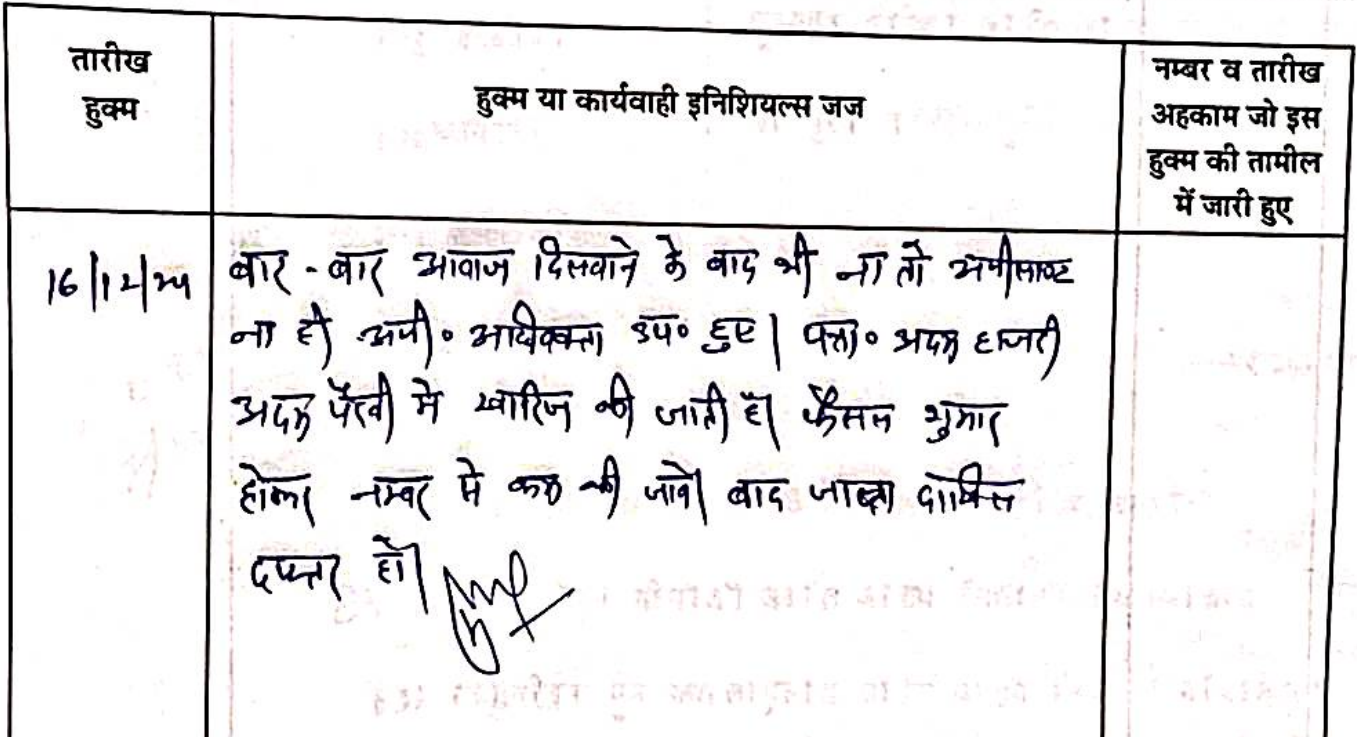 तारीख
हुक्म
हुक्म या कार्यवाही इनिशियल्स जज
नम्बर व तारीख
अहकाम जो इस
हुक्म की तामील
में जारी हुए
16/12/24
बार - बार आवाज दिलवाने के बाद भी ना तो अपीलान्ट
ना ही अपी० अधिवक्ता उप० हुए। पत्रा० अदम हाजरी
अदम पैरवी मे खारिज की जाती है। फैसल शुमार
होकर नम्बर से कम की जावे। बाद जाब्ता दाखिल
दफ्तर हो।